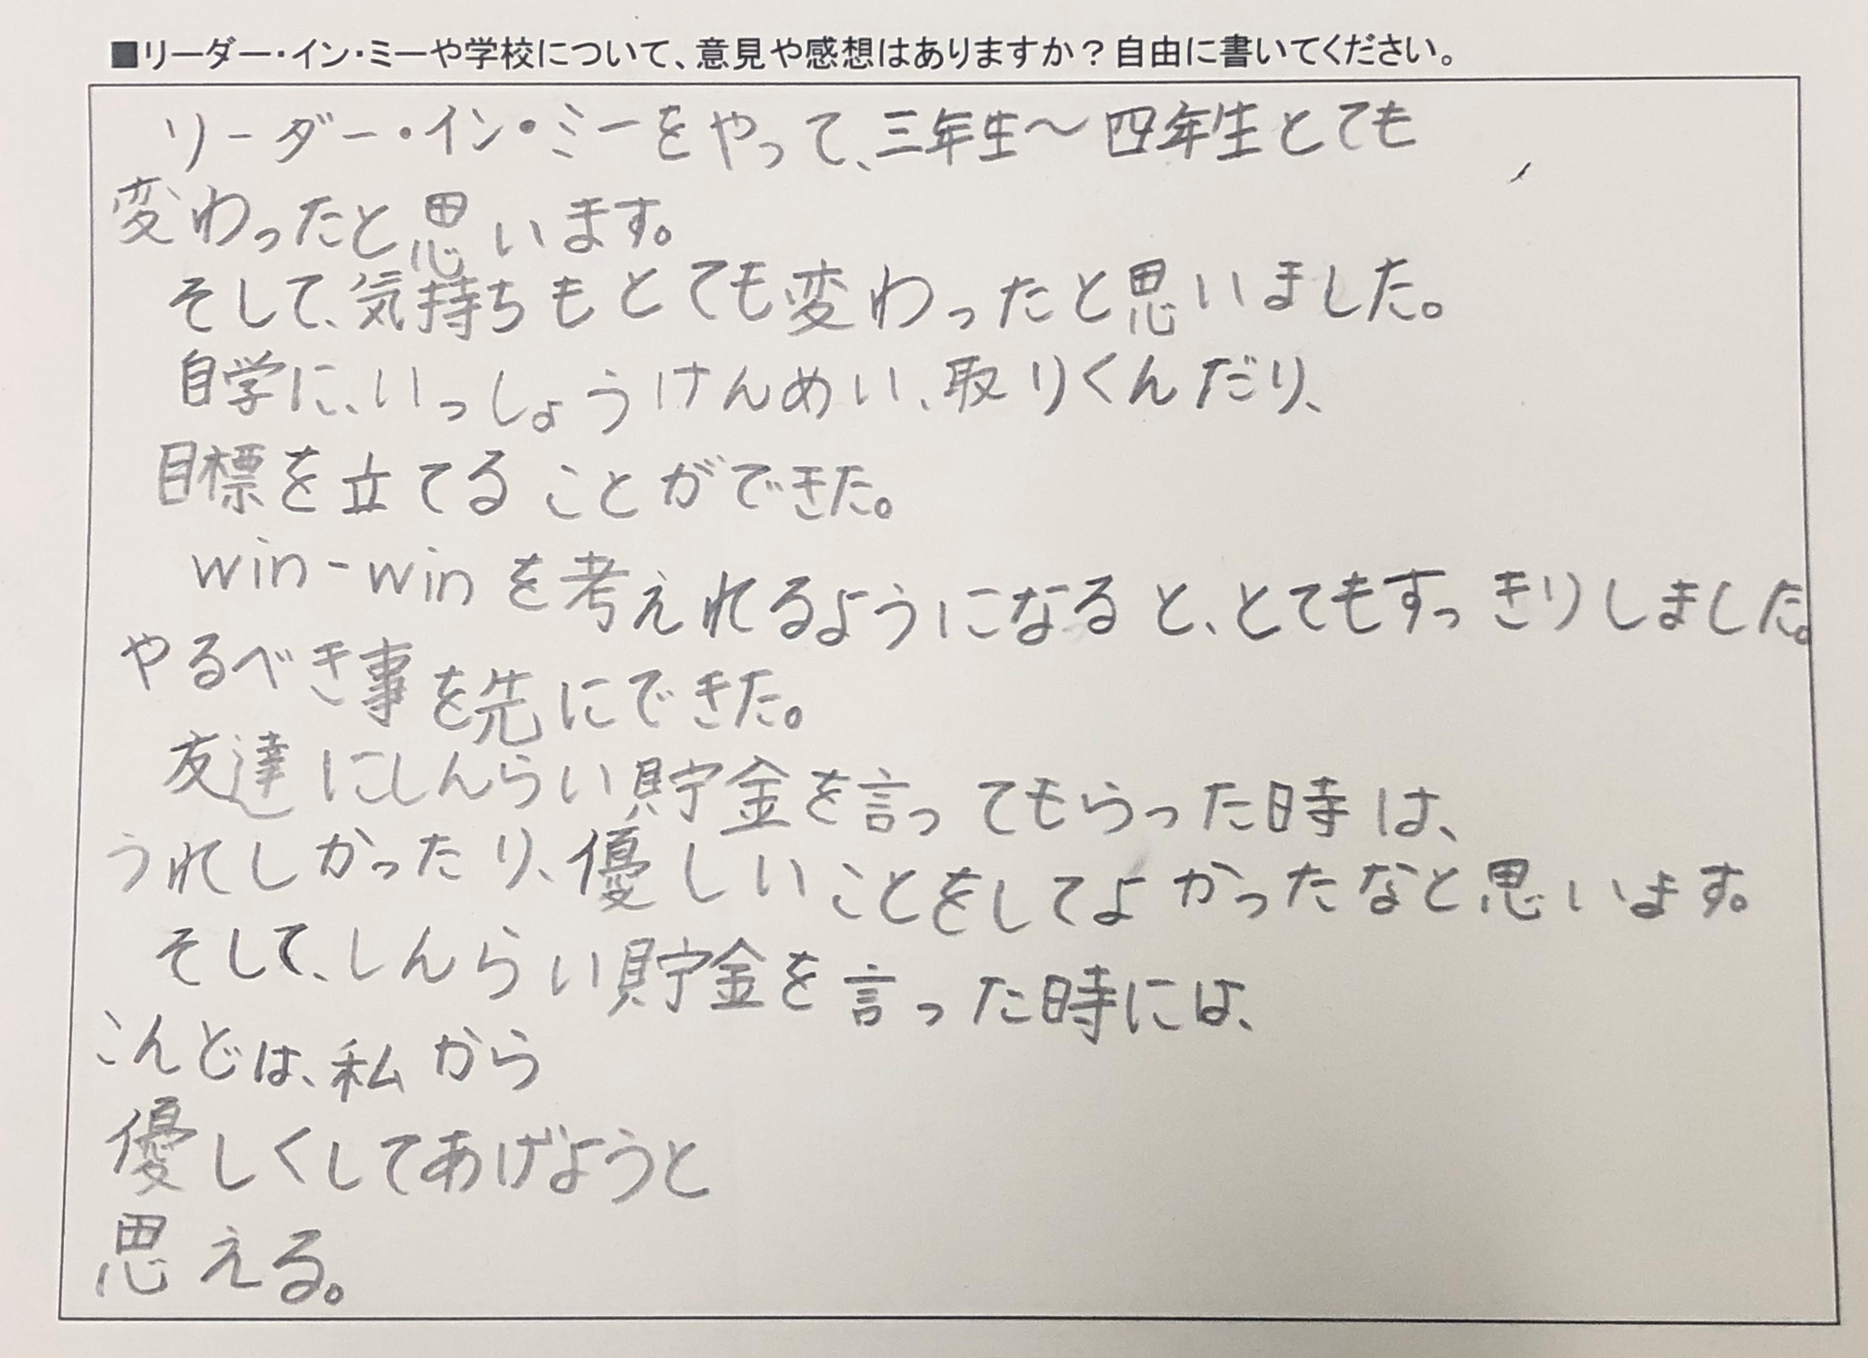 ■リーダー・イン・ミーや学校について、意見や感想はありますか？自由に書いてください。
リーダー・イン・ミーをやって、三年生〜四年生とても
変わったと思います。
そして、気持ちもとても変わったと思いました。
自学に、いっしょうけんめい、取りくんだり、
目標を立てることができた。
win-winを考えれるようになると、とてもすっきりしました。
やるべき事を先にできた。
友達にしんらい貯金を言ってもらった時は、
うれしかったり、優しいことをしてよかったなと思います。
そして、しんらい貯金を言った時には、
こんどは、私から
優しくしてあげようと
思える。